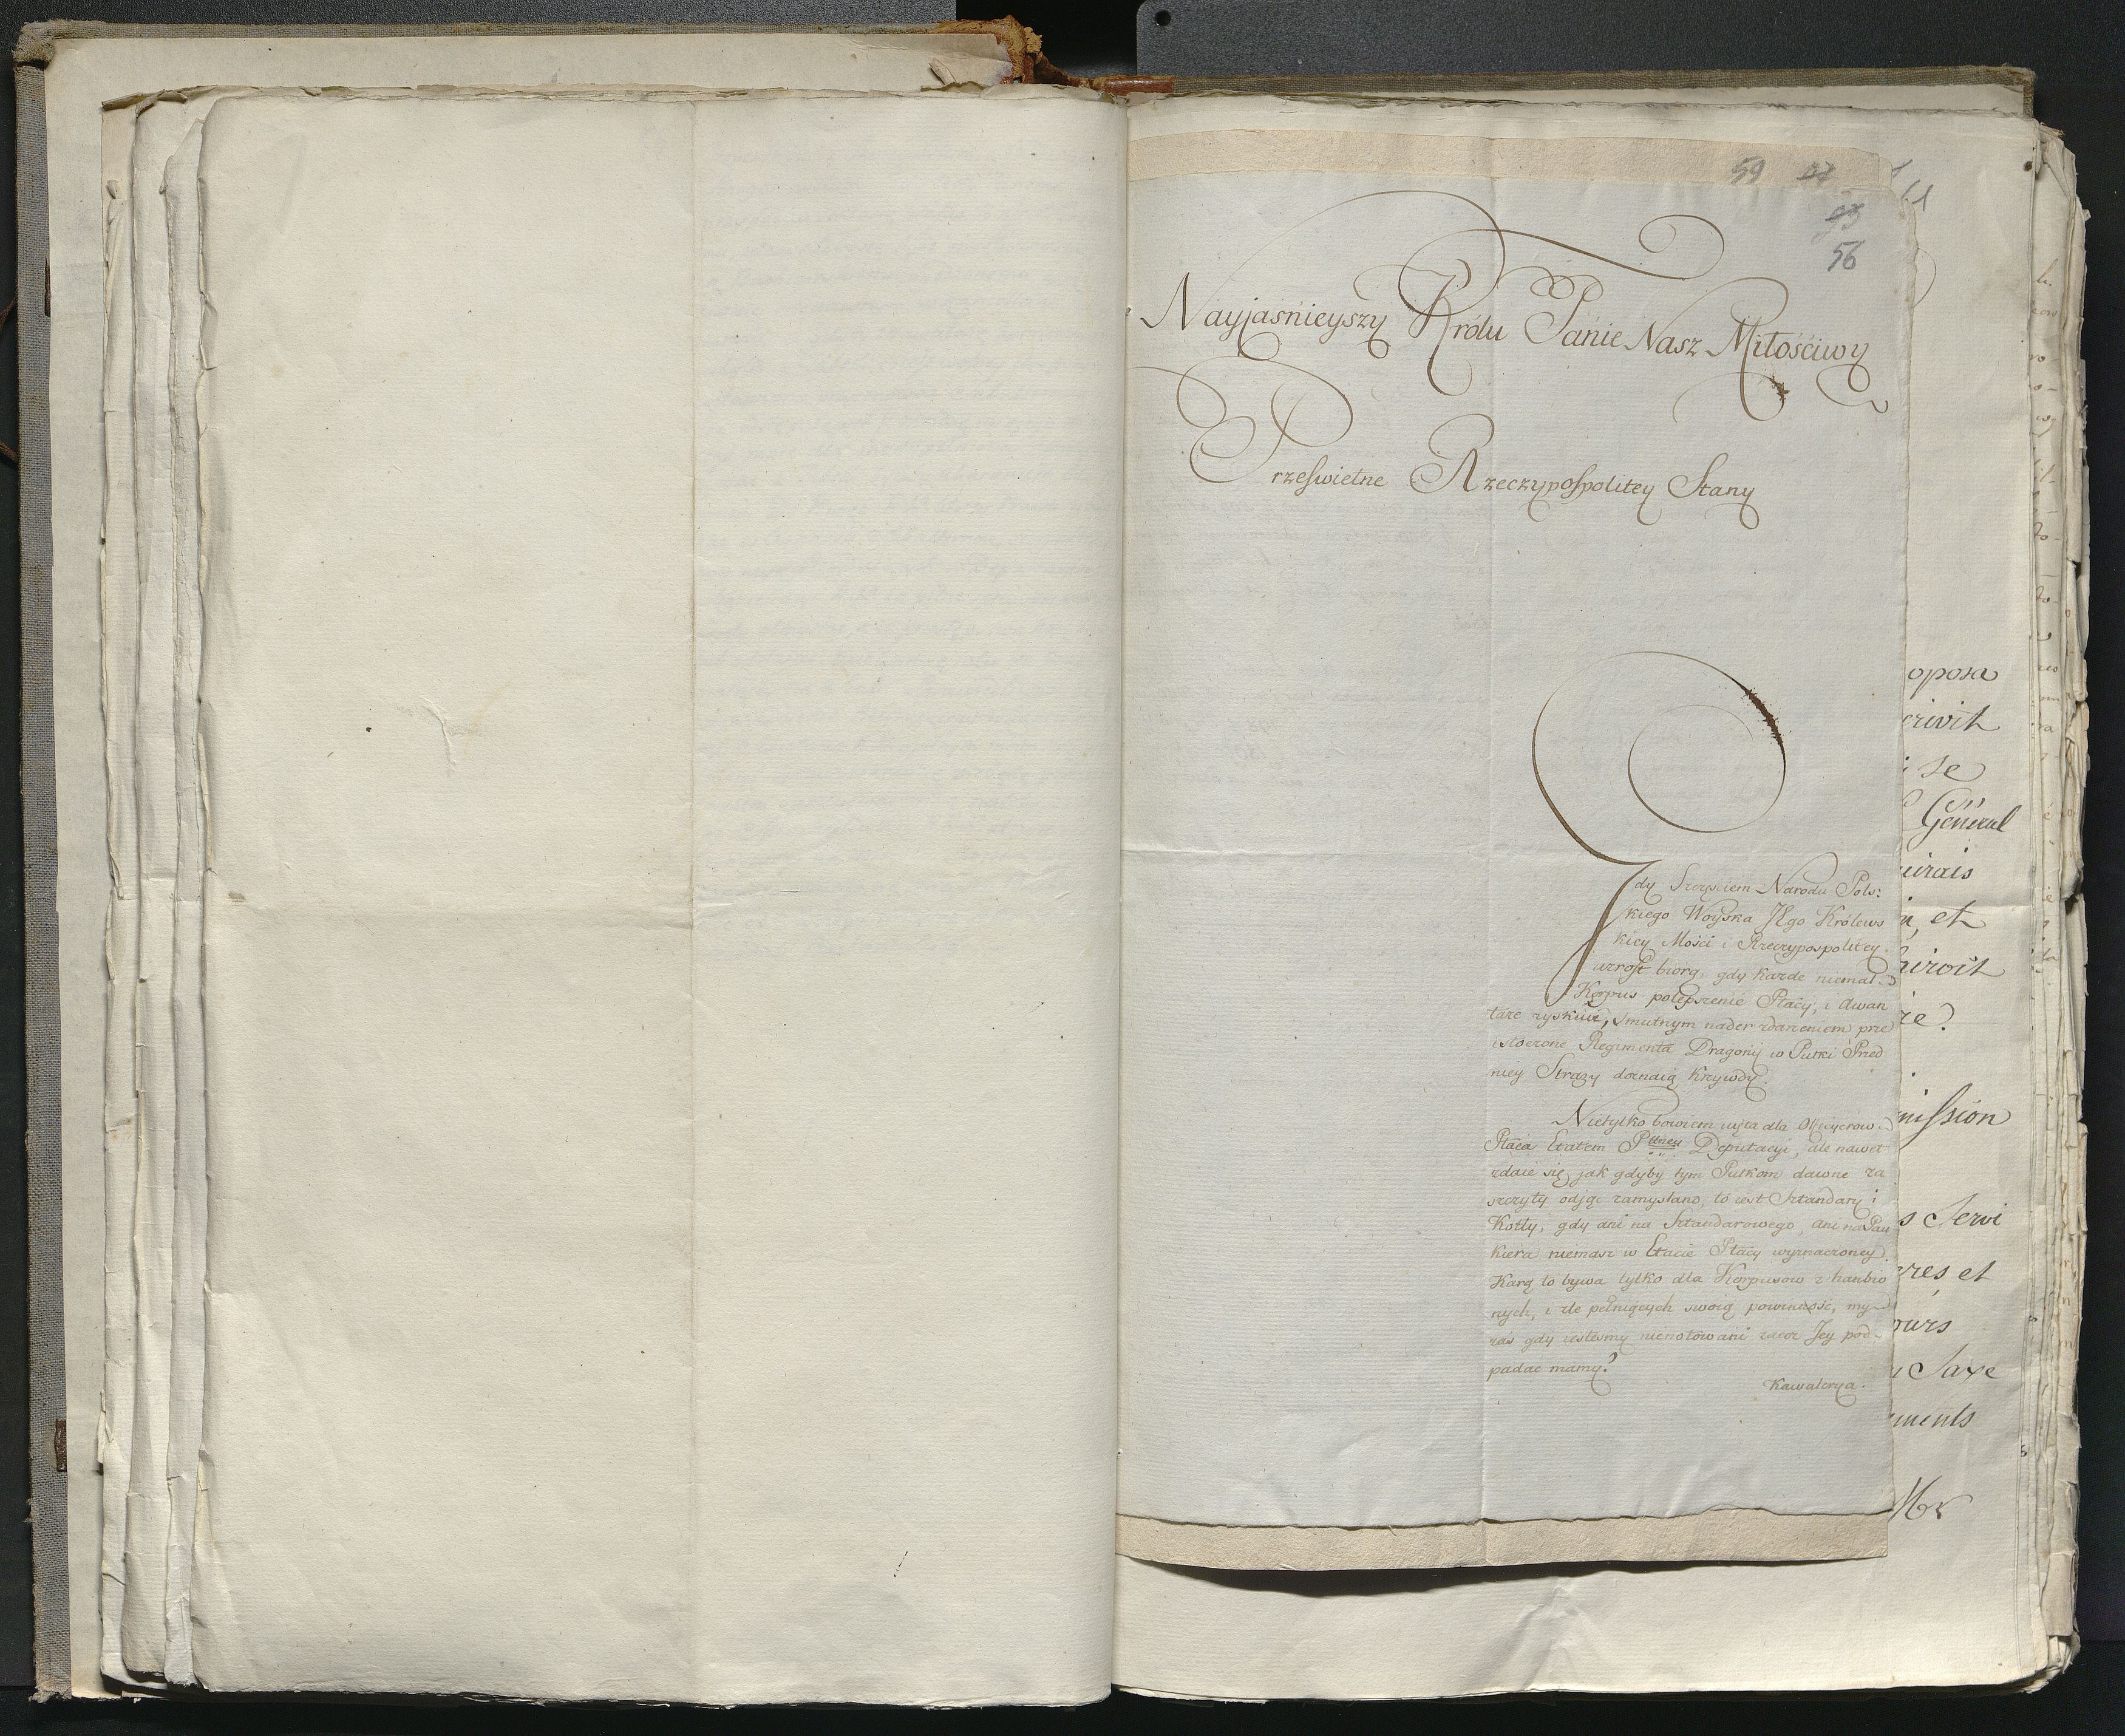 59 27
93
56
Nayjaśnieyszy Królu Panie Nasz Miłościwy
Prześwietne Rzeczypospolitey Stany
Gdy Szczysciem Narodu Pols:
kiego Woyska JKgo Królews
kiey Mości i Rzeczypospolitey
wzrost biorą, gdy każde niemal
Korpus polepszenie Płacy, i Awan
taże zyskuie, smutnym nader zdarzeniem prze
istoczone Regimenta Dragonij w Pułki Przed
niey Straży doznaią Krzywdy.
Nietylko bowiem uięta dla Officyerow
Płaca Etatem Deputacyi, ale nawet
zdaie się jak gdyby tym Pułkom dawne za
szczyty odjąć zamyslano, to iest Sztandary i
Kotły, gdy ani na Sztandarowego, ani na Pau
kiera niemasz w Etacie Płacy wyznaczoney.
Karą to bywa tylko dla Korpusow z hanbio
nych, i źle pełniących swoią powinność, my
zaś gdy iestesmy nienotowani zacoż Jey pod-
padać mamy?
Kawalerya.
oposa
crivit
se
General
uirais
et
uiroit
re?
mission
s Servi
res et
ours
Saxe
ments
Mr